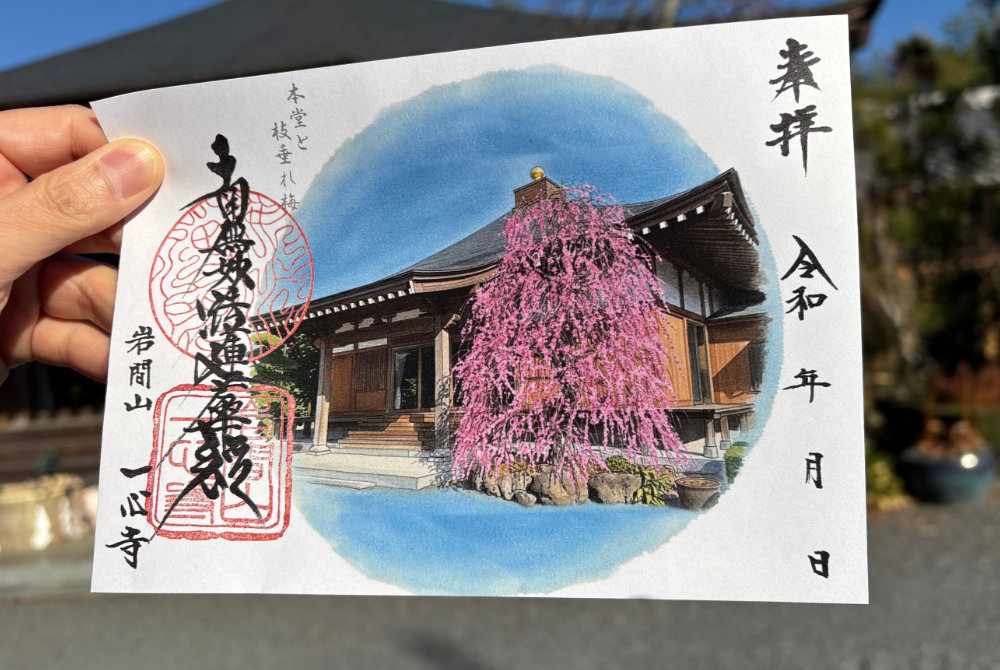 奉拝
令和 年 月 日
本堂と
枝垂れ梅
南無妙法蓮華経
岩間山
一心寺